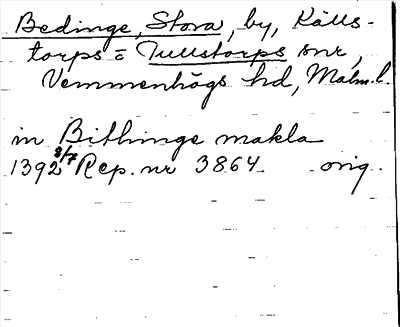 Bedinge, Stora, by, Källs-
torps o Tullstorps snr,
Vemmenhögs hd, Malm.l.
in Bithinge makla
1392 8/7 Rep. nr 3864 orig.